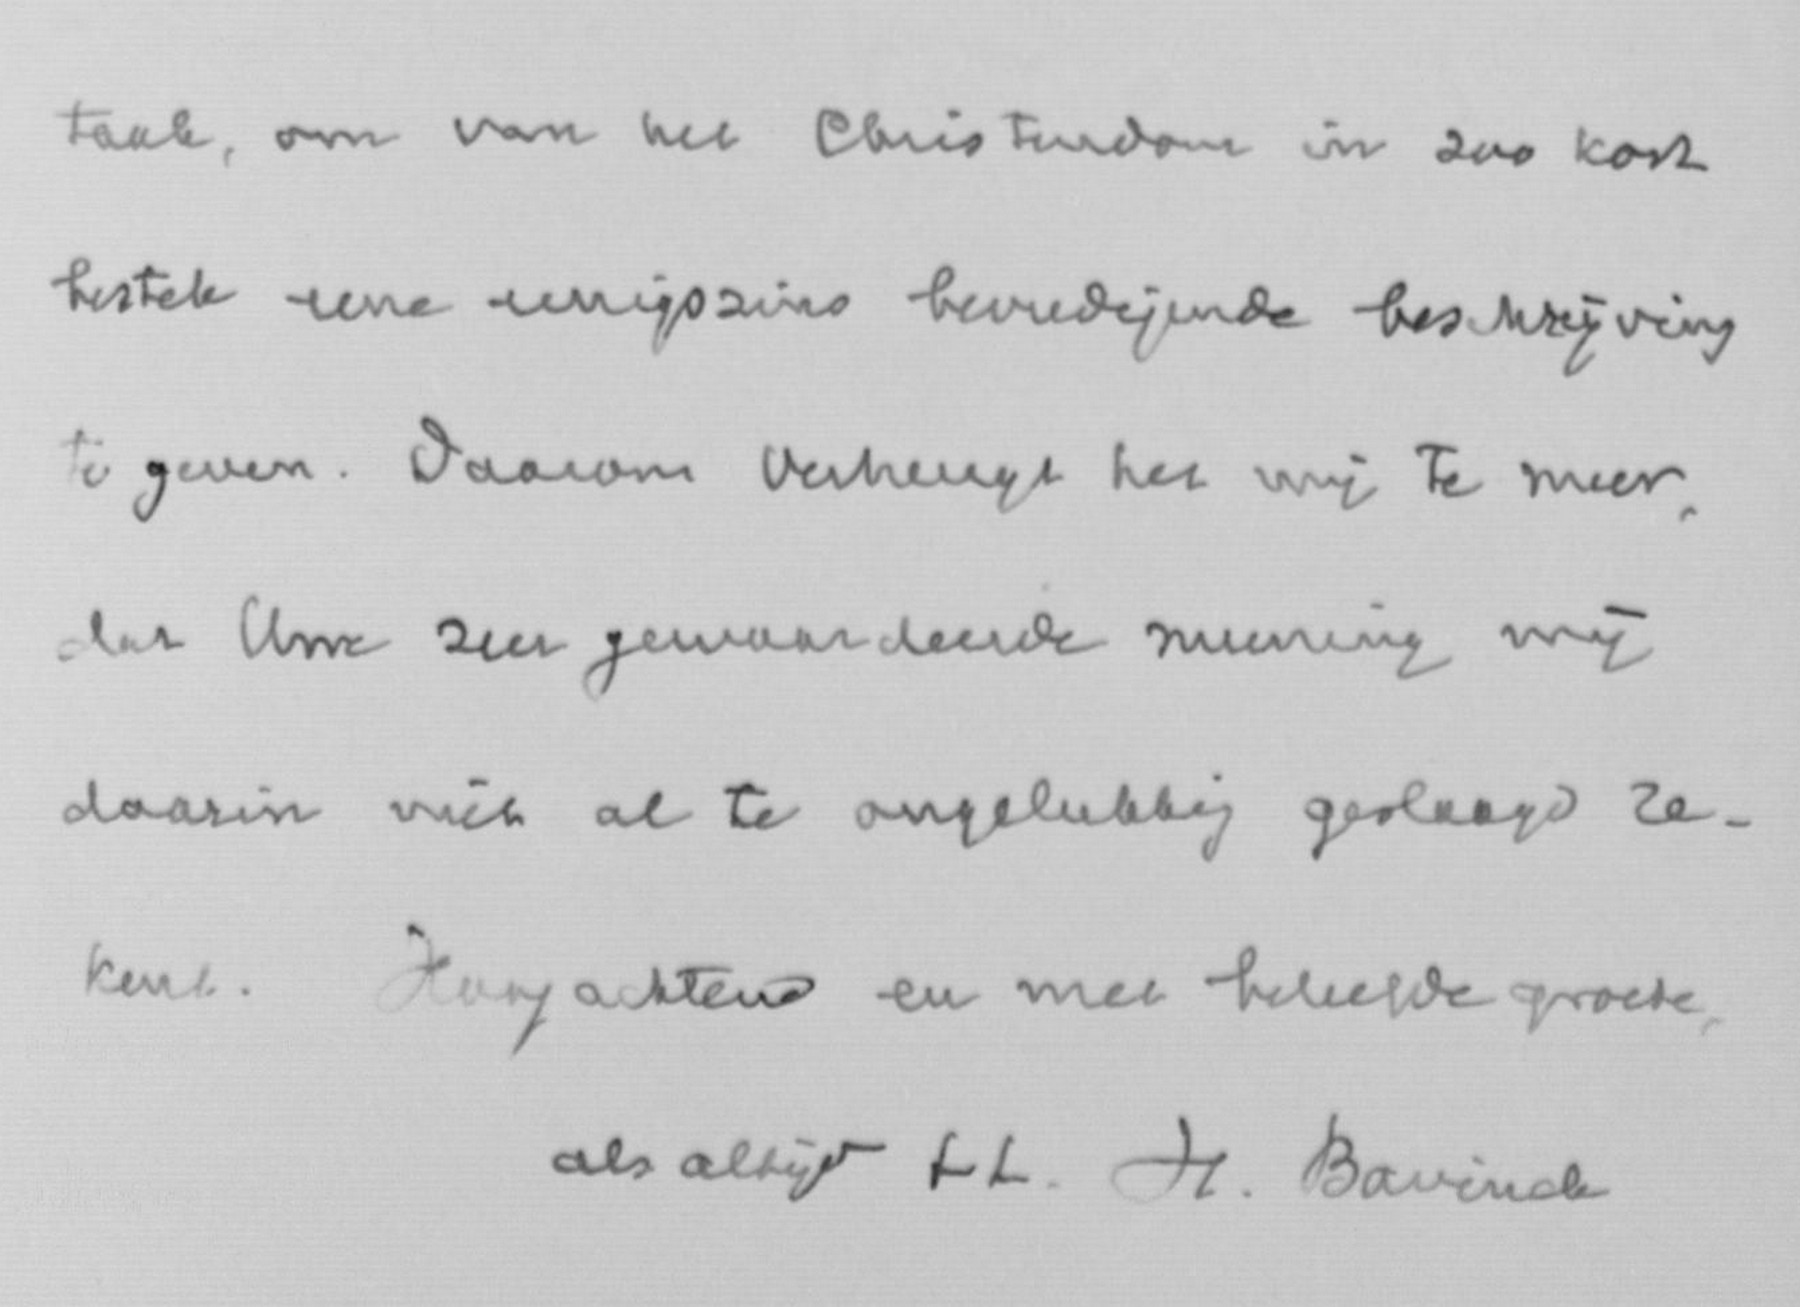 taak, om van het Christendom in zoo kort
bestek eene eenigszins bevredigende beschrijving
te geven. Daarom verheugt het mij te meer,
dat Uwe zeer gewaardeerde meening mij
daarin niet al te ongelukkig geslaagd re-
kent. Hoogachtend en met beleefde groete,
als altijd t.t. H. Bavinck